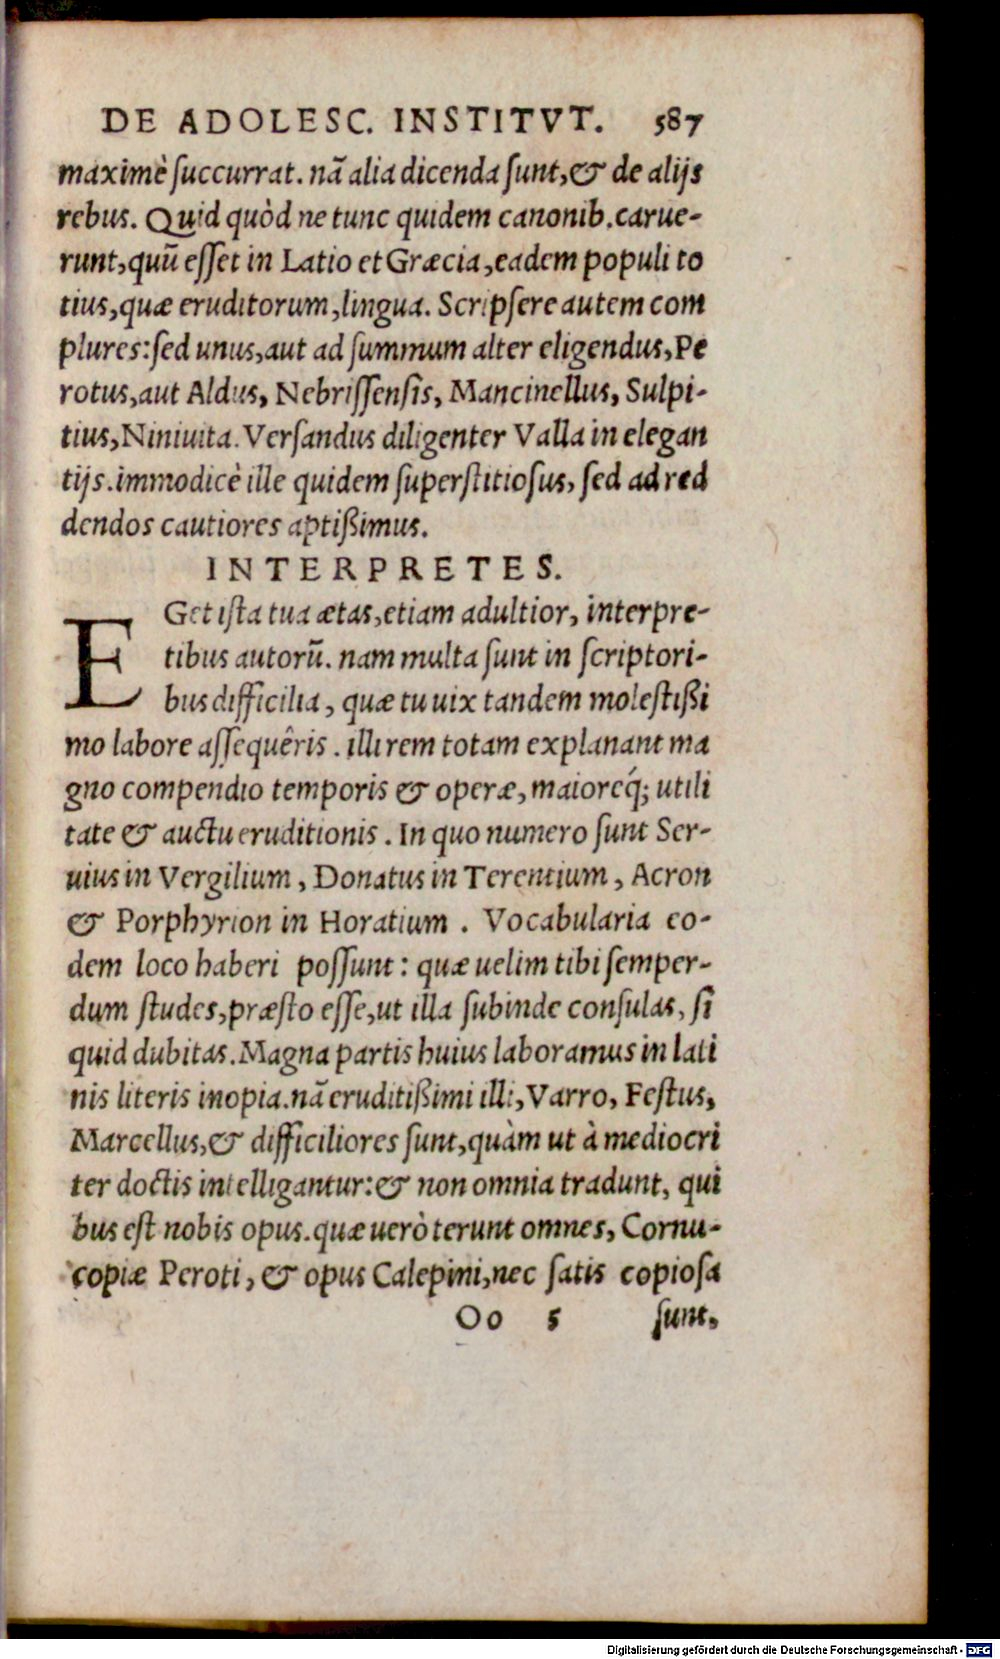 DE ADOLESC. INSTITVT. 587
maximè succurrat. nã alia dicenda sunt,& de alijs
rebus. Quid quòd ne tunc quidem canonib. carue-
runt,quũ esset in Latio et Græcia,eadem populi to
tius,quæ eruditorum,lingua. Scripsere autem com
plures:sed unus,aut ad summum alter eligendus,Pe
rotus,aut Aldus, Nebrissensis, Mancinellus, Sulpi-
tius,Niniuita. Versandus diligenter Valla in elegan
tijs.immodicè ille quidem superstitiosus, sed ad red
dendos cautiores aptißimus.
INTERPRETES.
EGet ista tua ætas,etiam adultior, interpre-
tibus autorũ. nam multa sunt in scriptori-
bus difficilia, quæ tu uix tandem molestißi
mo labore assequêris. illi rem totam explanant ma
gno compendio temporis & operæ, maioreq́; utili
tate & auctu eruditionis. In quo numero sunt Ser-
uius in Vergilium, Donatus in Terentium, Acron
& Porphyrion in Horatium. Vocabularia eo-
dem loco haberi possunt: quæ uelim tibi semper-
dum studes,præsto esse,ut illa subinde consulas, si
quid dubitas. Magna partis huius laboramus in lati
nis literis inopia.nã eruditißimi illi, Varro, Festus,
Marcellus,& difficiliores sunt,quàm ut à mediocri
ter doctis intelligantur:& non omnia tradunt, qui
bus est nobis opus.quæ uerò terunt omnes, Cornu-
copiæ Peroti, & opus Calepini,nec satis copiosa
Oo 5 sunt,
Digitalisierung gefördert durch die Deutsche Forschungsgemeinschaft - DFG